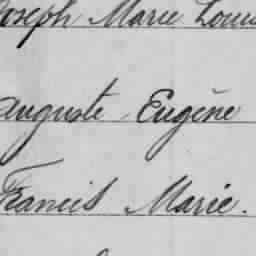 Joseph Marie Louis
Auguste Eugène
Francis Marie.